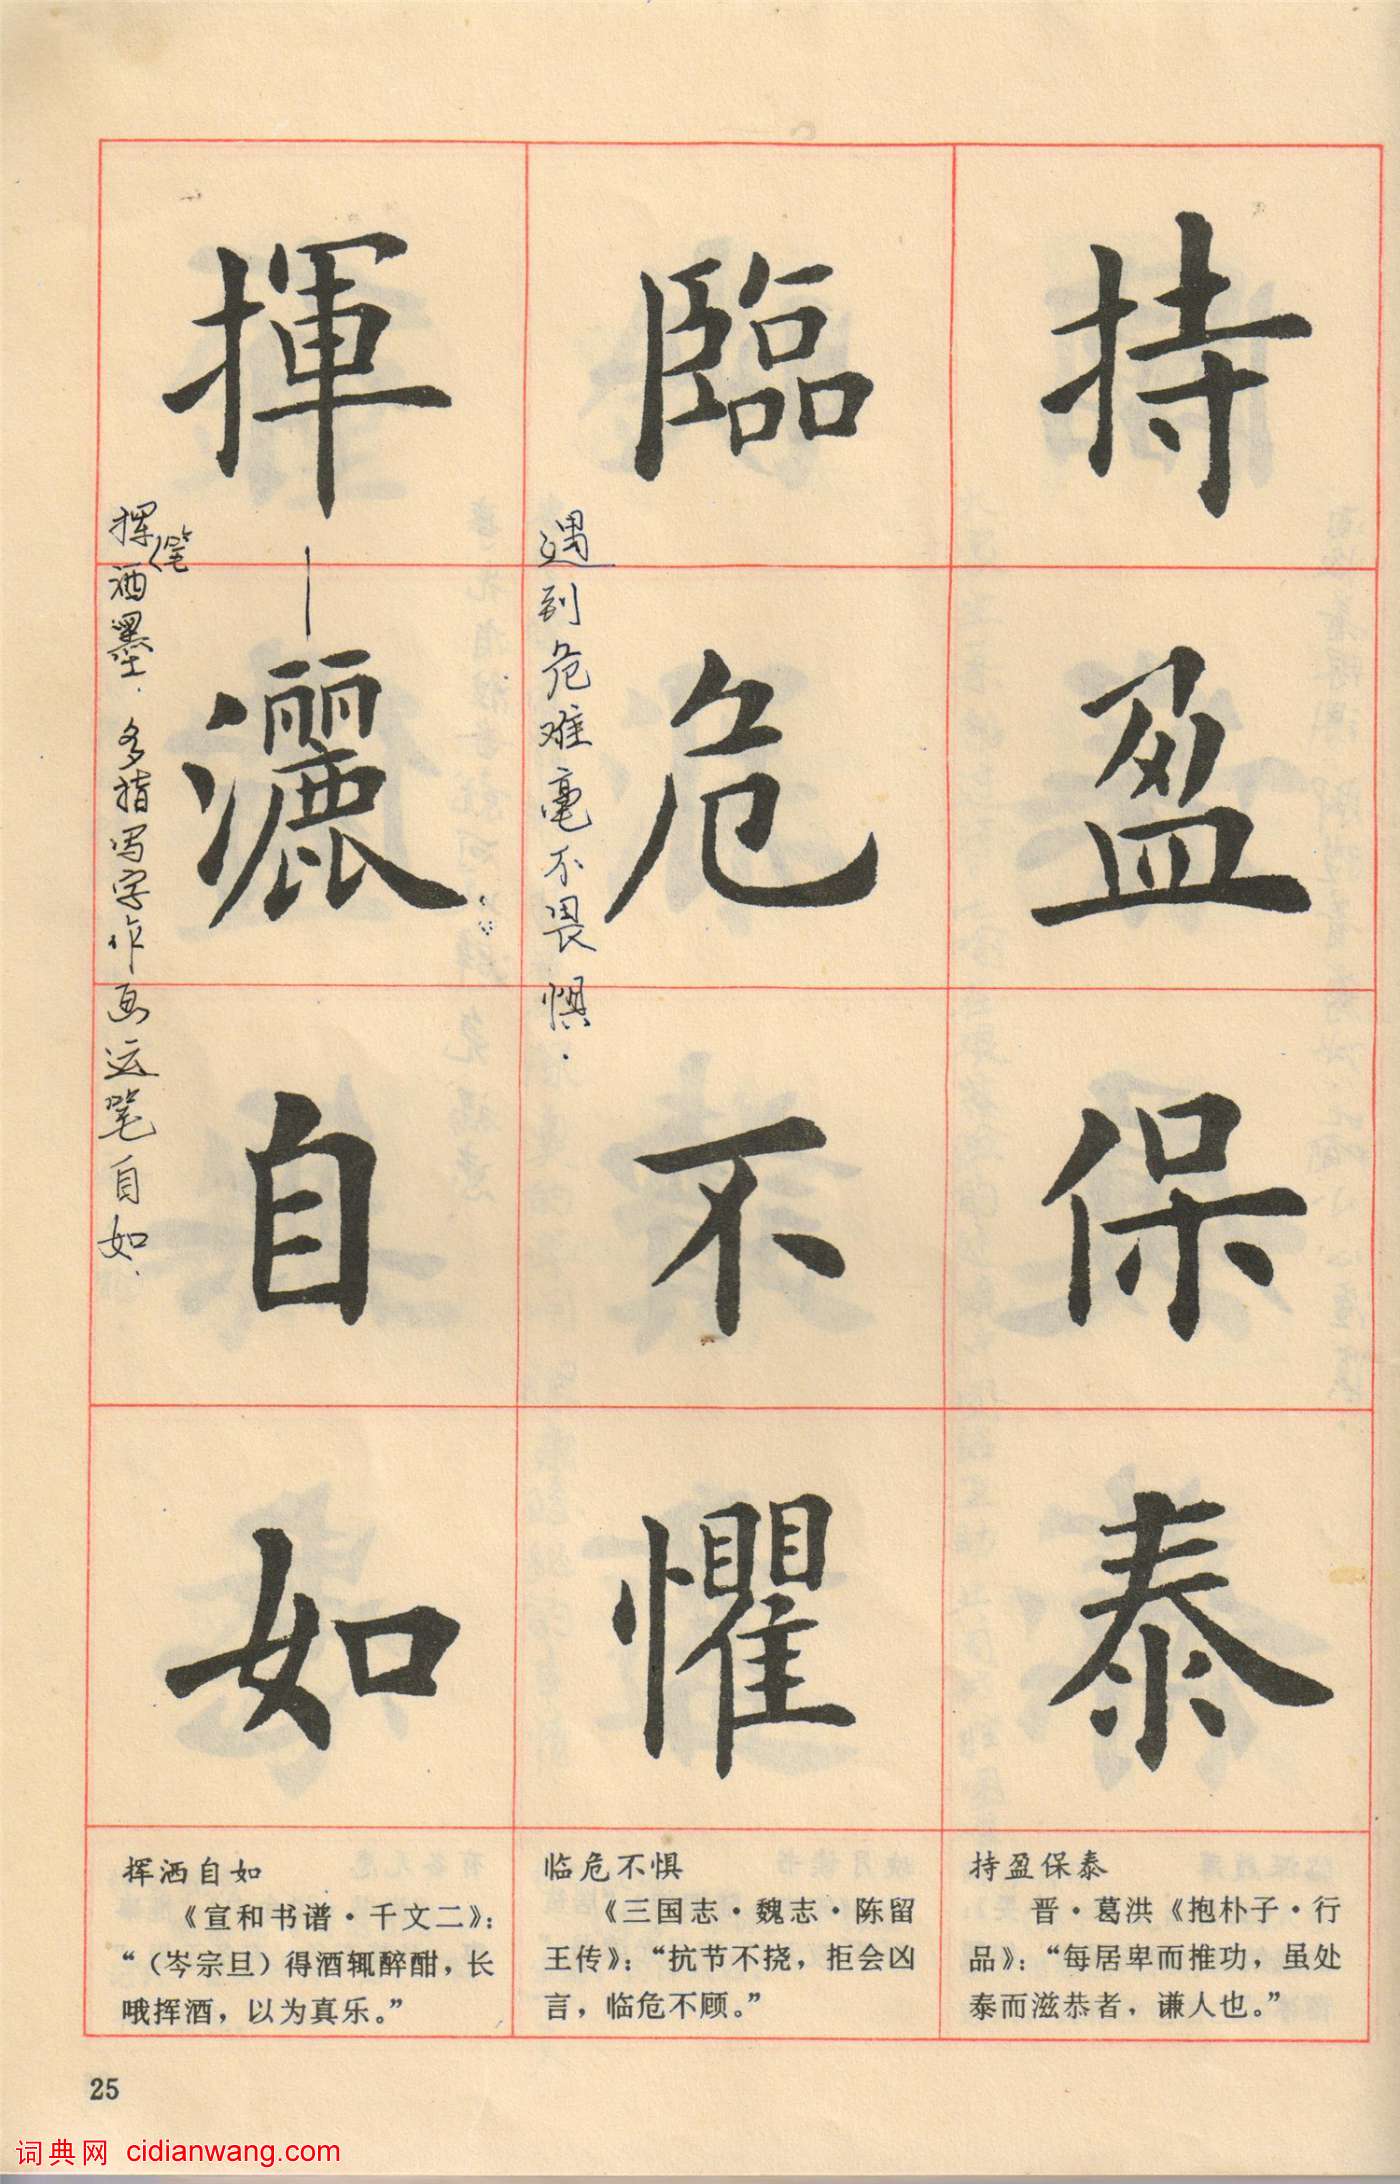 持盈保泰
臨危不懼
遇到危难毫不畏惧.
揮灑自如
挥笔洒墨.多指写字作画运笔自如.
持盈保泰
晋·葛洪《抱朴子·行
品》：“每居卑而推功，虽处
泰而滋恭者，谦人也。”
临危不惧
《三国志·魏志·陈留
王传》：“抗节不挠，拒会凶
言，临危不顾。”
挥洒自如
《宣和书谱·千文二》：
“（岑宗旦）得酒辄醉酣，长
哦挥洒，以为真乐。”
25
词典网 cidianwang.com